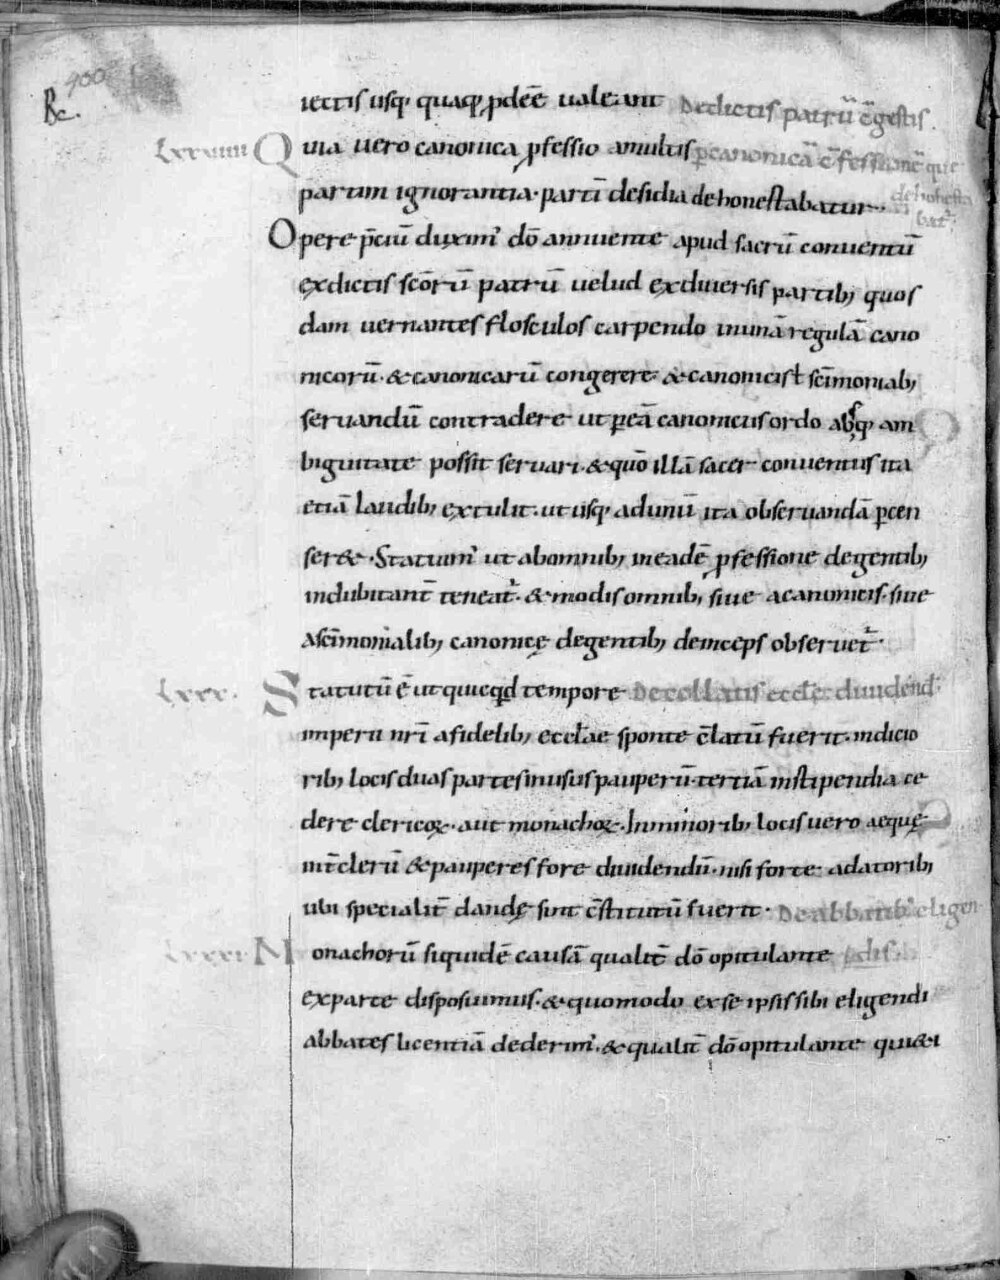 900
Rc.
iectis usq; quaq; pdeē valeant De dictis patrū c̄gestis.
Lxxviiii Quia vero canonica pfessio a multis p canonicā c̄fessionē que
partim ignorantia· partī desidia dehonestabatur·· dehonesta
bat᷑.
Opere p̄ciū duxim' dō annuente apud sacrū conventū
ex dictis scōrū patrū velud ex diversis partib; quos
dam vernantes flosculos carpendo in unā regulā cano
nicorū· & canonicarū congerere· & canonicis ł scīmoniab;
servandū contradere ut p eā canonicus ordo absq; am
biguitate possit servari· & quō illā sacer conventus ita
etiā laudib; extulit· ut usq; ad unū ita observandā pcen
ser&· Statuim' ut ab omnib; in eadē pfessione degentib;
indubitant̄ teneat᷑· & modis omnib; sive a canonicis· sive
a scīmonialib; canonicę degentib; deinceps observet᷑·
Lxxx. Statutū ē ut quicqd tempore De collatis eccłę dividend᷑
imperii nrī a fidelib; ecclae sponte c̄latū fuerit· in dicio
rib; locis duas partes in usus pauperū· tertiā in stipendia ce
dere clericoꝝ· aut monachoꝝ· In minorib; locis vero aequę
int̄ clerū & pauperes fore dividendū· nisi forte a datorib;
ubi specialit̄ dandę sint c̄stitutū fuerit· De abbatib' eligen
Lxxxi Monachorū siquidē causā qualit̄ dō opitulante dis.
ex parte disposuimus· & quomodo ex se ipsis sibi eligendi
abbates licentiā dederim'· & qualit̄ dō opitulante qui&i